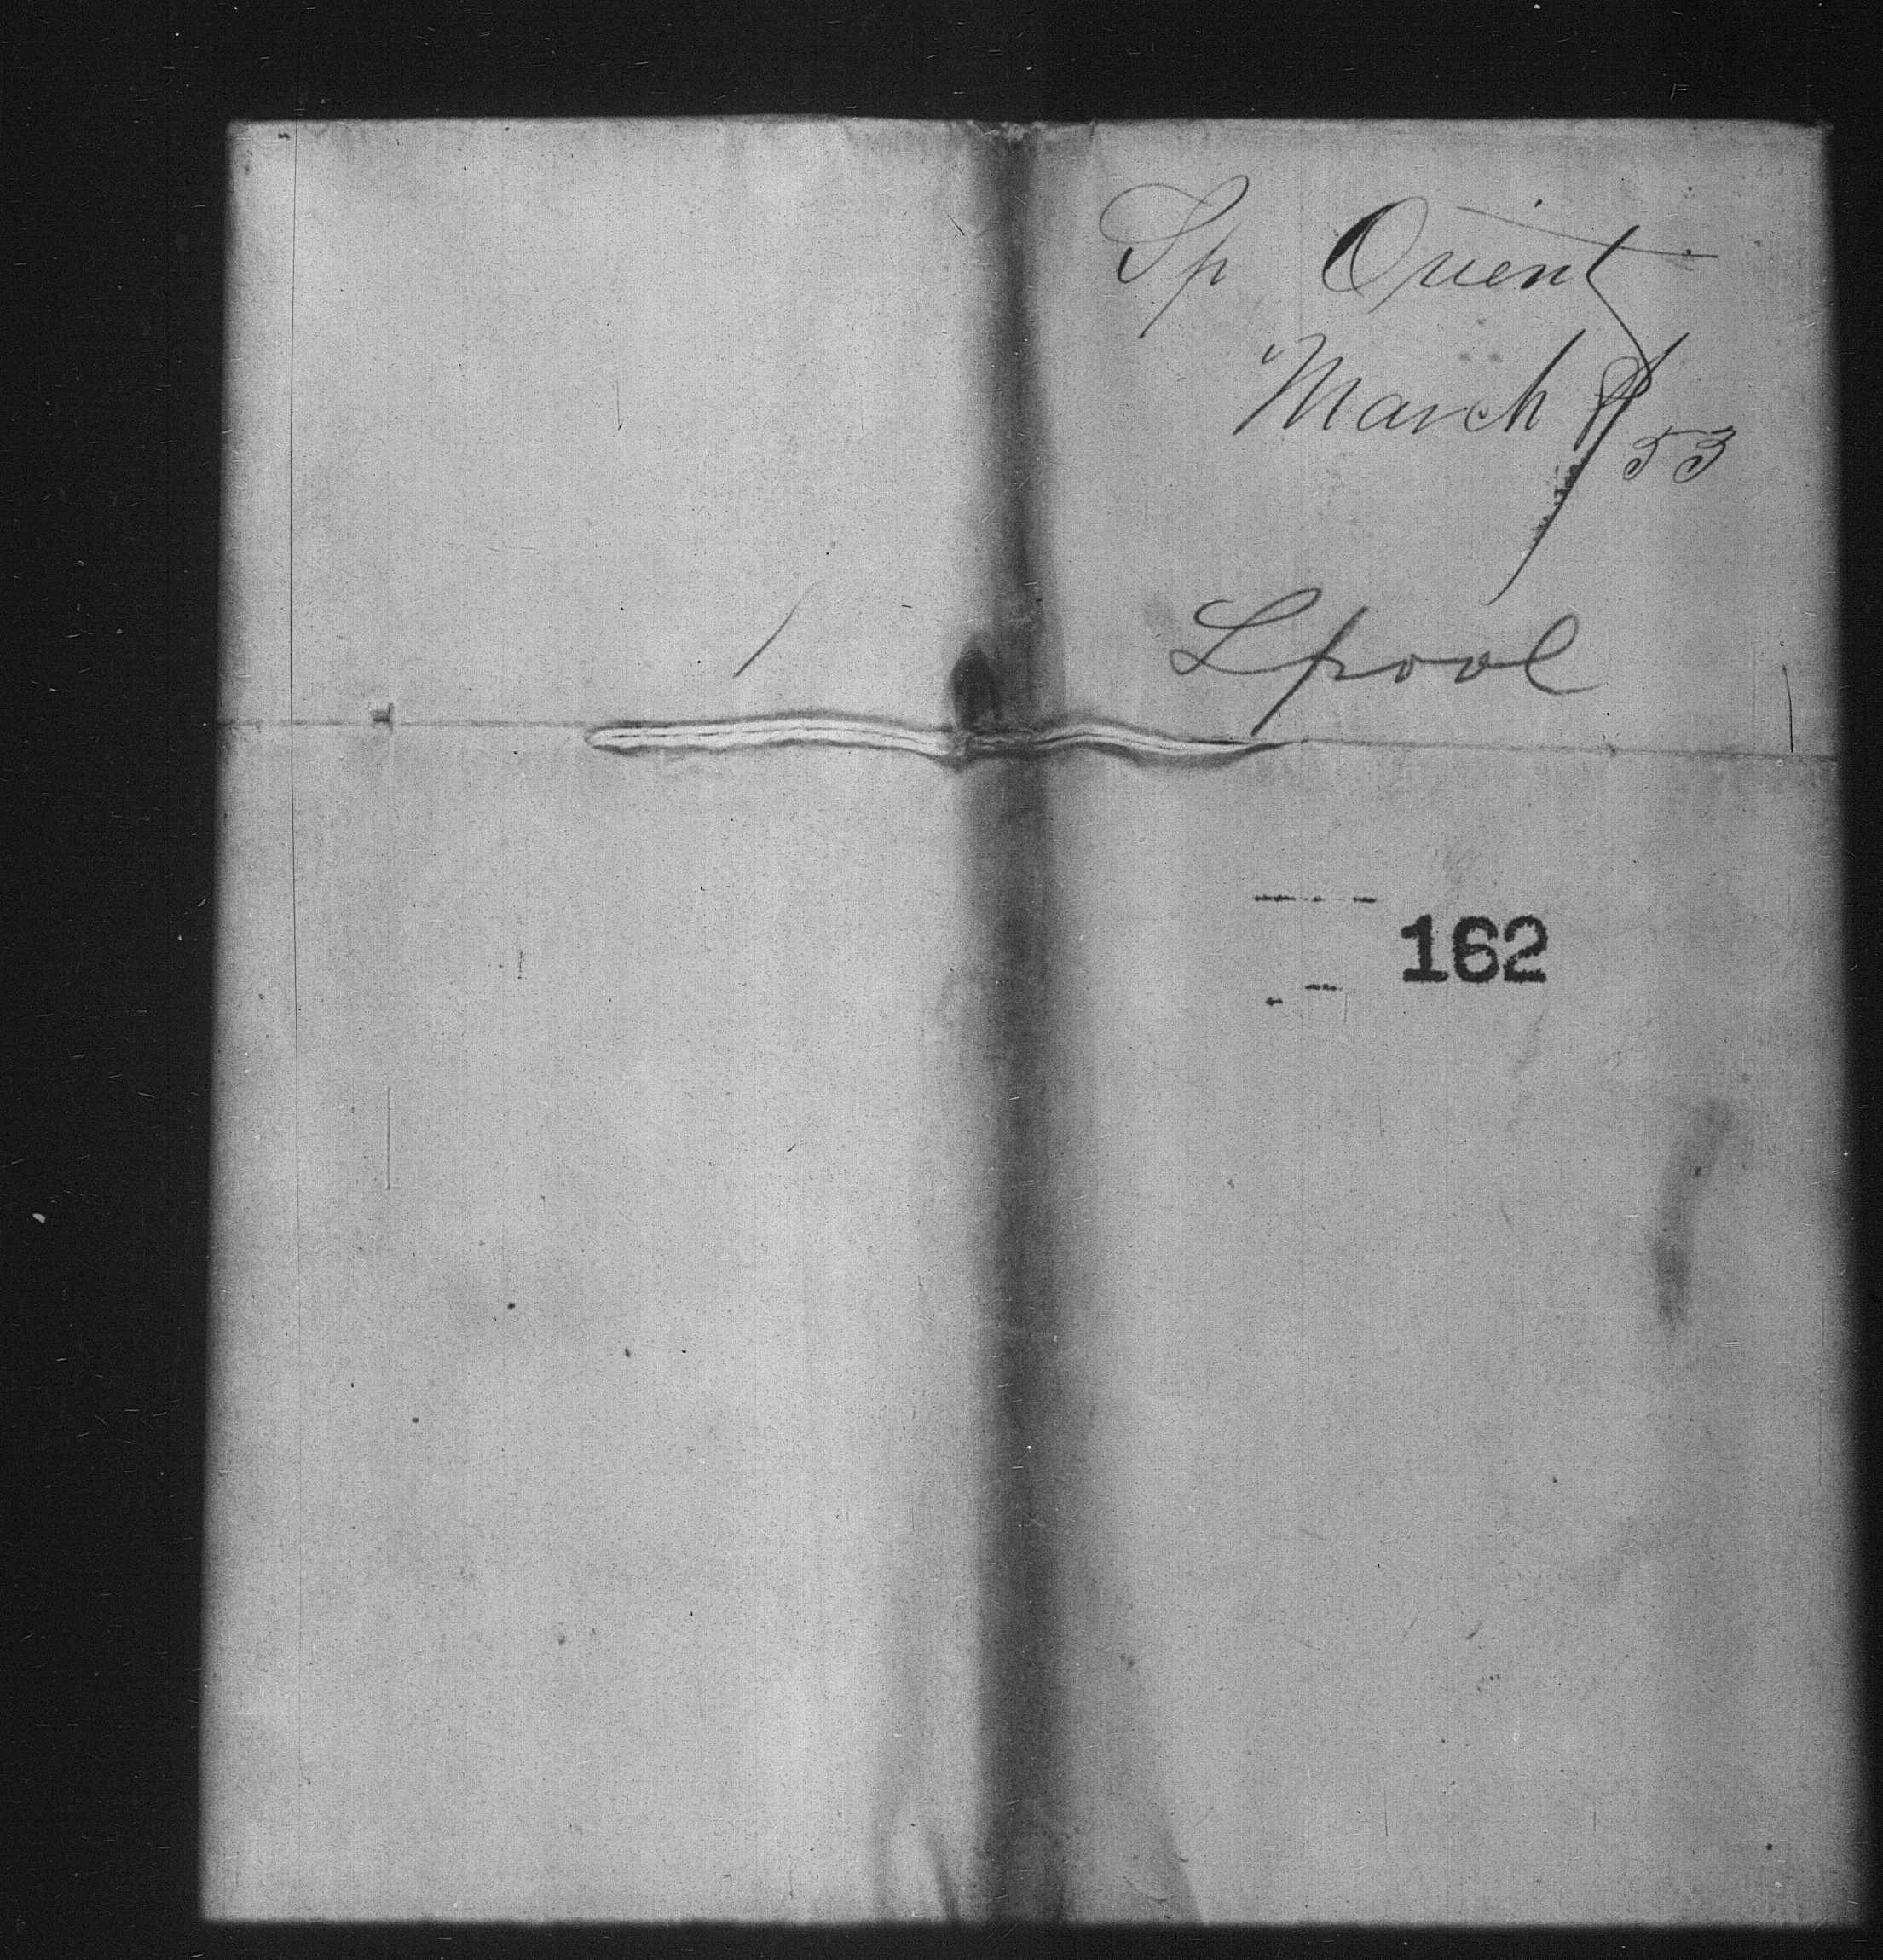 Sp Orient
March 8/53
Lpool
162